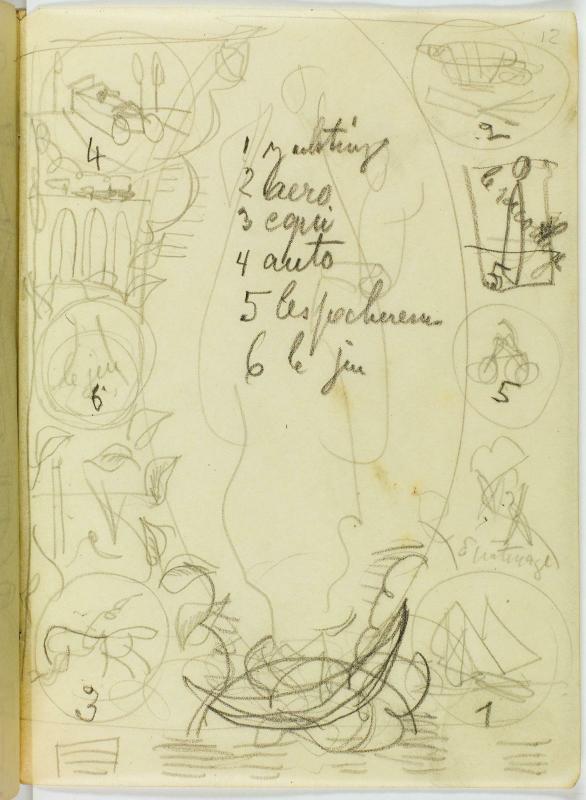 12
4
2
1 yachting
2 aero
3 equi
4 auto
5 les
6 le jeu
5
le jeu
6
5
patinage
3
1